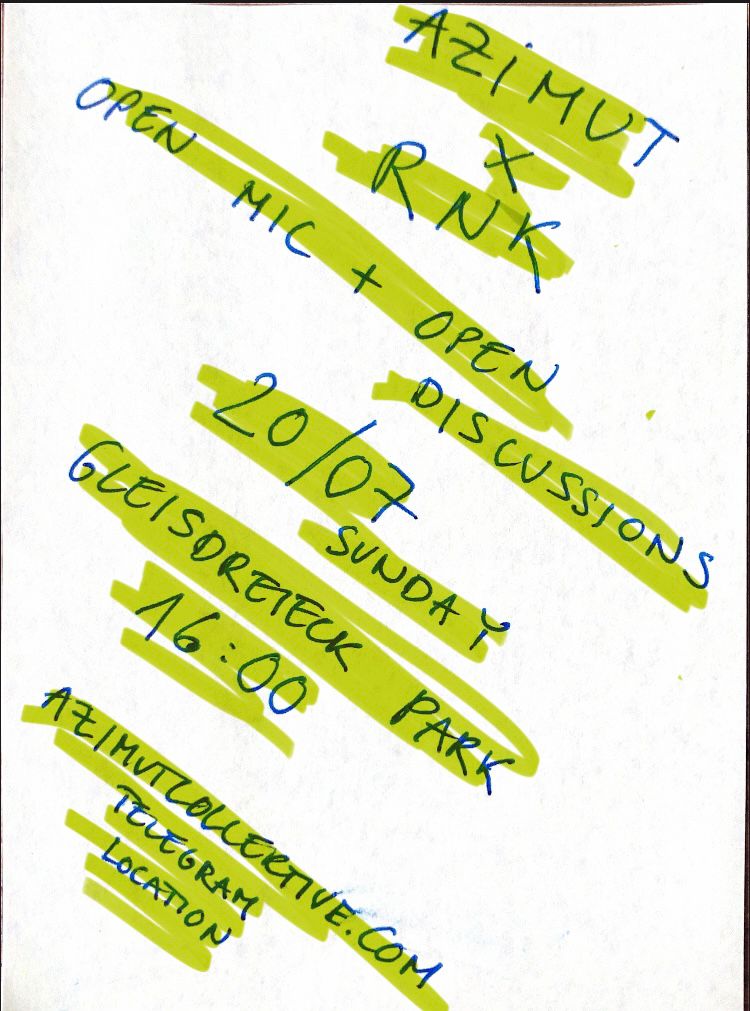 AZIMUT
X
RNK
OPEN MIC + OPEN
DISCUSSIONS
20/07
SUNDAY
GLEISDREIECK PARK
16:00
AZIMUTCOLLERTIVE.COM
TELEGRAM
LOCATION